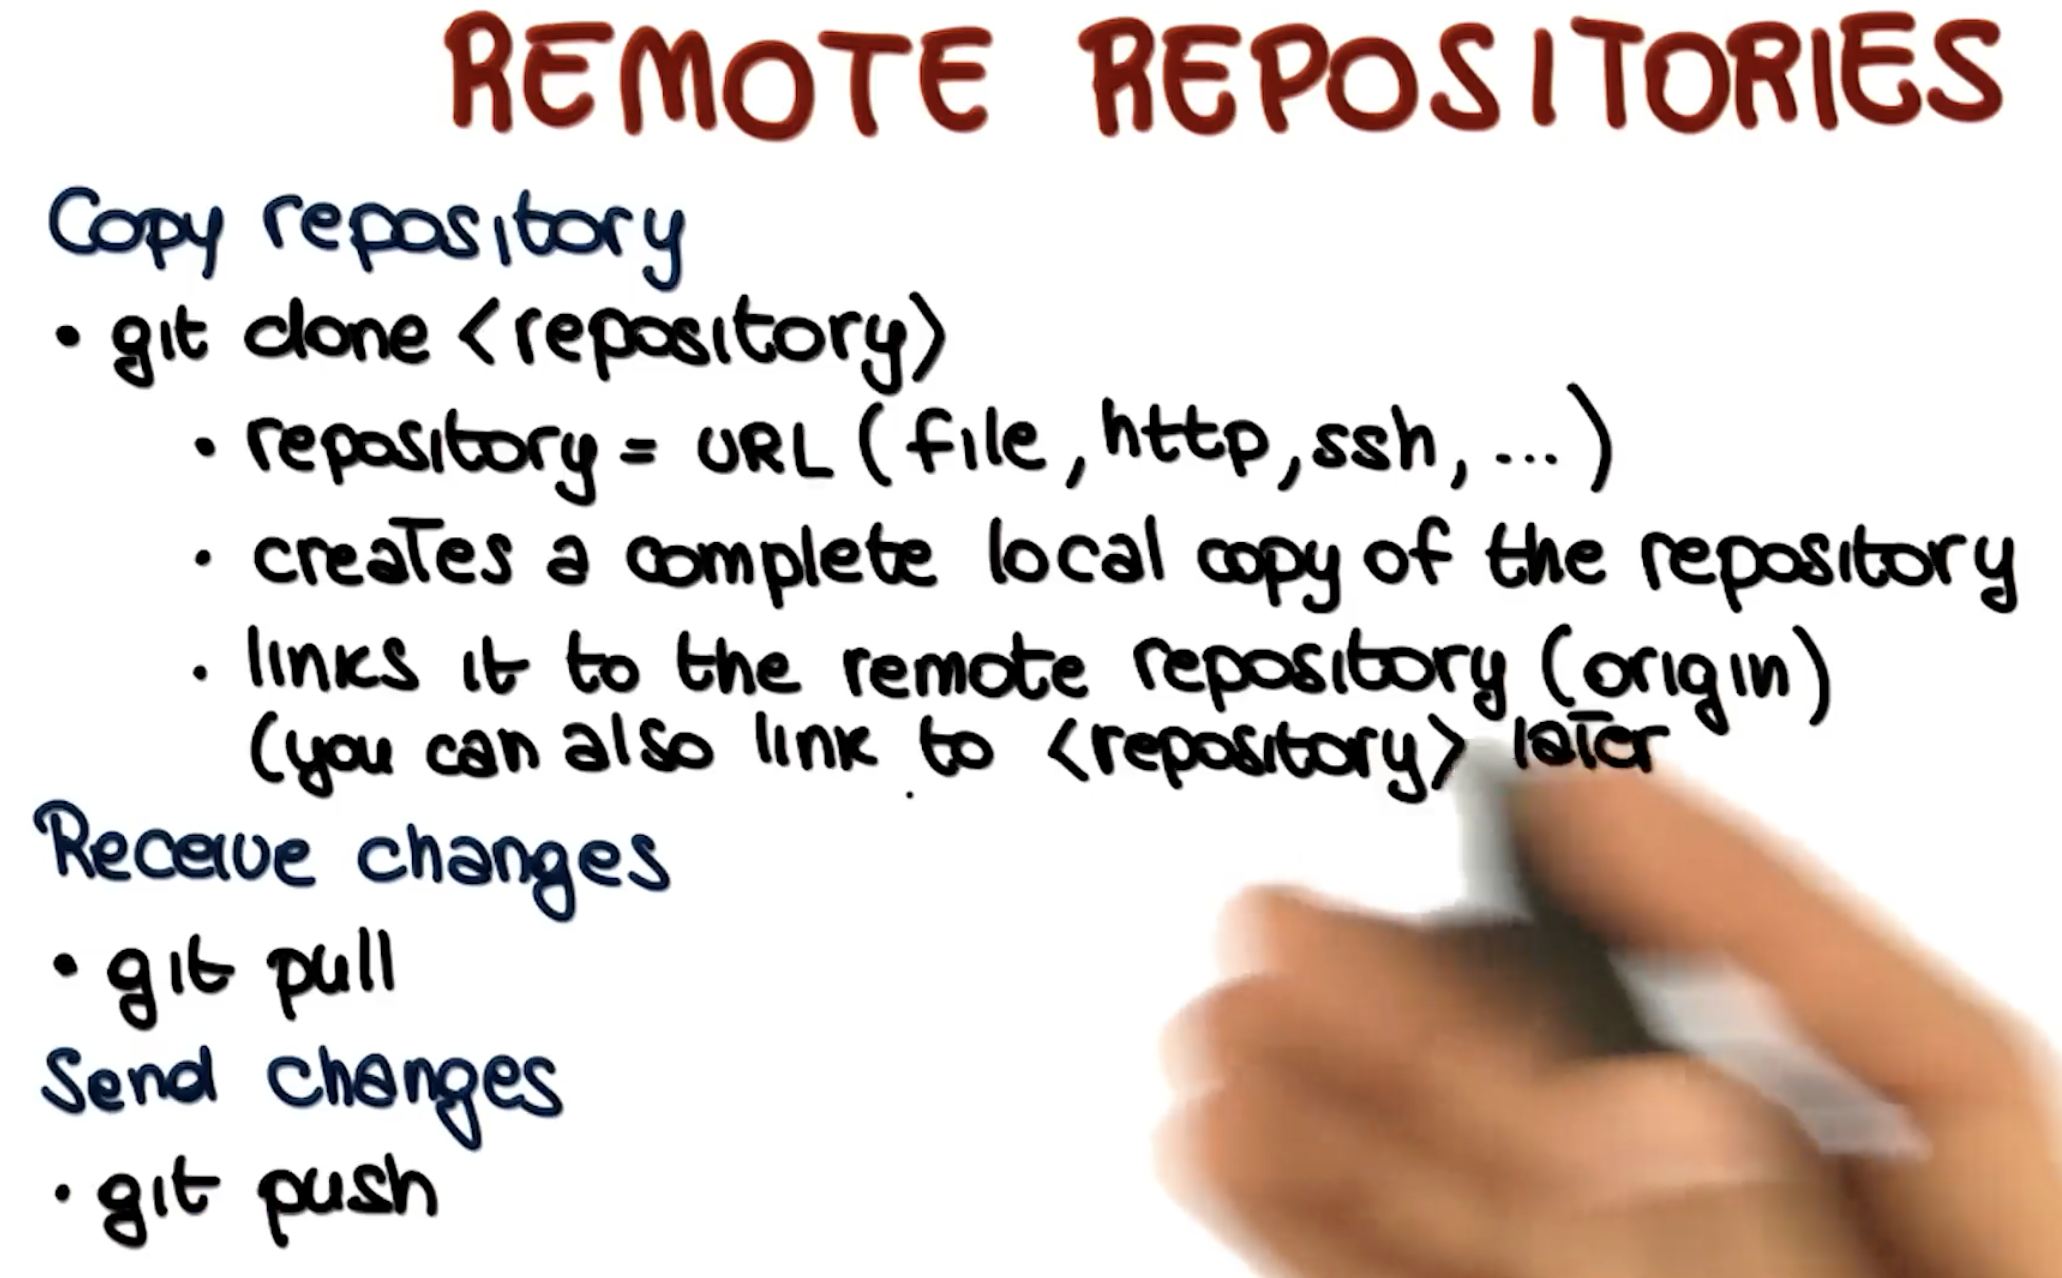 REMOTE REPOSITORIES
Copy repository
• git clone <repository>
• repository = URL (file, http, ssh, ...)
• creates a complete local copy of the repository
• links it to the remote repository (origin)
(you can also link to <repository> later
Receive changes
• git pull
Send changes
• git push